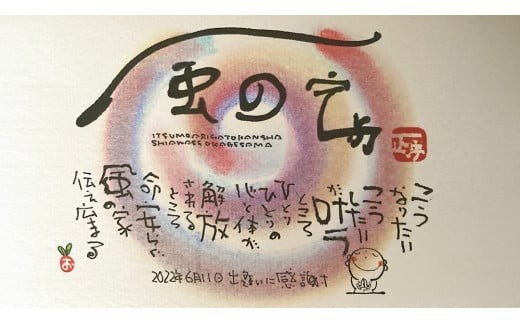 風の家
ITSUMOARIGATOKANSHA
SHIAWASEOKAGESAMA
こうなりたい
こうしたい
が叶う
ところ
ひとり
ひとりの
心と体が
解放
される
ところ
命安らぐ
風の家
伝え広まる
お
2022年6月11日 出逢いに感謝す